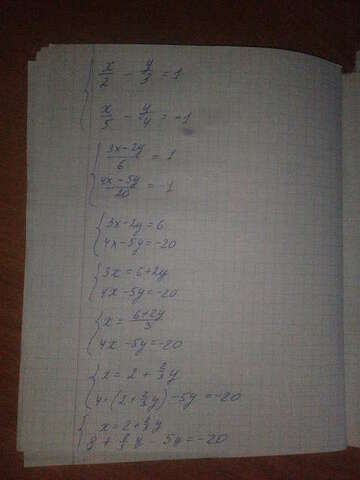 x/2 - y/3 = 1
x/5 - y/4 = -1
(3x-2y)/6 = 1
(4x-5y)/20 = -1
3x-2y=6
4x-5y=-20
3x=6+2y
4x-5y=-20
x=(6+2y)/3
4x-5y=-20
x=2+2/3y
4·(2+2/3y)-5y=-20
x=2+2/3y
8+ y-5y=-20